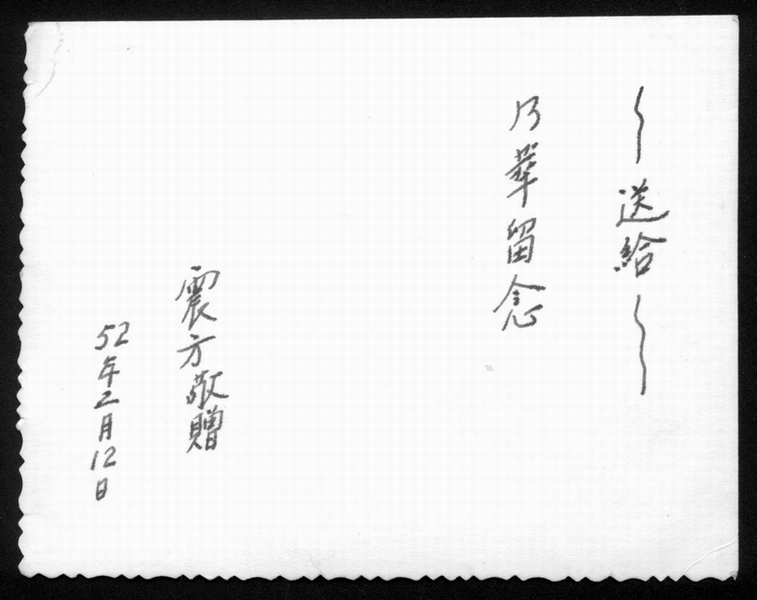 ～送給～
乃華留念
震方敬贈
52年2月12日